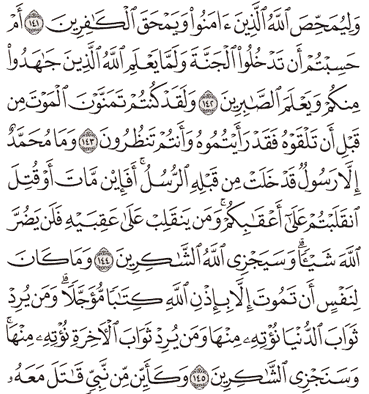 وَلِيُمَحِّصَ اللَّهُ الَّذِينَ ءَامَنُوا وَيَمْحَقَ الْكَافِرِينَ ١٤١ أَمْ
حَسِبْتُمْ أَن تَدْخُلُوا الْجَنَّةَ وَلَمَّا يَعْلَمِ اللَّهُ الَّذِينَ جَاهَدُوا
مِنكُمْ وَيَعْلَمَ الصَّابِرِينَ ١٤٢ وَلَقَدْ كُنتُمْ تَمَنَّوْنَ الْمَوْتَ مِن
قَبْلِ أَن تَلْقَوْهُ فَقَدْ رَأَيْتُمُوهُ وَأَنتُمْ تَنظُرُونَ ١٤٣ وَمَا مُحَمَّدٌ
إِلَّا رَسُولٌ قَدْ خَلَتْ مِن قَبْلِهِ الرُّسُلُ ۚ أَفَإِيْن مَّاتَ أَوْ قُتِلَ
انقَلَبْتُمْ عَلَىٰ أَعْقَابِكُمْ ۚ وَمَن يَنقَلِبْ عَلَىٰ عَقِبَيْهِ فَلَن يَضُرَّ
اللَّهَ شَيْـًٔا ۗ وَسَيَجْزِي اللَّهُ الشَّاكِرِينَ ١٤٤ وَمَا كَانَ
لِنَفْسٍ أَن تَمُوتَ إِلَّا بِإِذْنِ اللَّهِ كِتَابًا مُّؤَجَّلًا ۗ وَمَن يُرِدْ
ثَوَابَ الدُّنْيَا نُؤْتِهِ مِنْهَا وَمَن يُرِدْ ثَوَابَ الْآخِرَةِ نُؤْتِهِ مِنْهَا ۚ
وَسَنَجْزِي الشَّاكِرِينَ ١٤٥ وَكَأَيِّن مِّن نَّبِيٍّ قَاتَلَ مَعَهُ